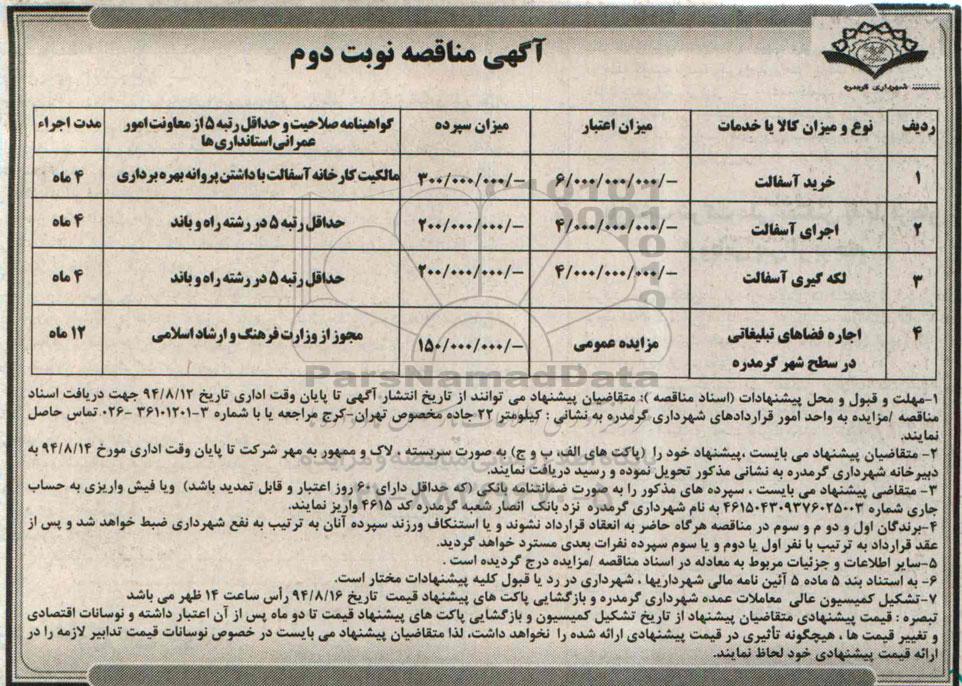 آگهی مناقصه نوبت دوم
شهرداری گرمدره
ردیف	نوع و میزان کالا یا خدمات	میزان اعتبار	میزان سپرده	گواهینامه صلاحیت و حداقل رتبه ۵ از معاونت امور عمرانی استانداری‌ها	مدت اجراء
۱	خرید آسفالت	۶/۰۰۰/۰۰۰/۰۰۰/-	۳۰۰/۰۰۰/۰۰۰/-	مالکیت کارخانه آسفالت با داشتن پروانه بهره برداری	۴ ماه
۲	اجرای آسفالت	۴/۰۰۰/۰۰۰/۰۰۰/-	۲۰۰/۰۰۰/۰۰۰/-	حداقل رتبه ۵ در رشته راه و باند	۴ ماه
۳	لکه گیری آسفالت	۴/۰۰۰/۰۰۰/۰۰۰/-	۲۰۰/۰۰۰/۰۰۰/-	حداقل رتبه ۵ در رشته راه و باند	۴ ماه
۴	اجاره فضاهای تبلیغاتی در سطح شهر گرمدره	مزایده عمومی	۱۵۰/۰۰۰/۰۰۰/-	مجوز از وزارت فرهنگ و ارشاد اسلامی	۱۲ ماه
ParsNamadData
۱-مهلت و قبول و محل پیشنهادات (اسناد مناقصه ): متقاضیان پیشنهاد می توانند از تاریخ انتشار آگهی تا پایان وقت اداری تاریخ ۹۴/۸/۱۲ جهت دریافت اسناد
مناقصه /مزایده به واحد امور قراردادهای شهرداری گرمدره به نشانی : کیلومتر ۲۲ جاده مخصوص تهران-کرج مراجعه یا با شماره ۳-۳۶۱۰۱۲۰۱ -۰۲۶ تماس حاصل
نمایند.
۲- متقاضیان پیشنهاد می بایست ،پیشنهاد خود را (پاکت های الف، ب و ج) به صورت سربسته ، لاک و ممهور به مهر شرکت تا پایان وقت اداری مورخ ۹۴/۸/۱۴ به
دبیرخانه شهرداری گرمدره به نشانی مذکور تحویل نموده و رسید دریافت نمایند.
۳- متقاضی پیشنهاد می بایست ، سپرده های مذکور را به صورت ضمانتنامه بانکی (که حداقل دارای ۶۰ روز اعتبار و قابل تمدید باشد) ویا فیش واریزی به حساب
جاری شماره ۴۶۱۵۰۴۳۰۹۳۷۶۰۲۵۰۰۳ به نام شهرداری گرمدره نزد بانک انصار شعبه گرمدره کد ۴۶۱۵ واریز نمایند.
۴-برندگان اول و دو م و سوم در مناقصه هرگاه حاضر به انعقاد قرارداد نشوند و یا استنکاف ورزند سپرده آنان به ترتیب به نفع شهرداری ضبط خواهد شد و پس از
عقد قرارداد به ترتیب با نفر اول یا دوم و یا سوم سپرده نفرات بعدی مسترد خواهد گردید.
۵-سایر اطلاعات و جزئیات مربوط به معادله در اسناد مناقصه /مزایده درج گردیده است .
۶- به استناد بند ۵ ماده ۵ آئین نامه مالی شهرداریها ، شهرداری در رد یا قبول کلیه پیشنهادات مختار است.
۷-تشکیل کمیسیون عالی معاملات عمده شهرداری گرمدره و بازگشایی پاکت های پیشنهاد قیمت تاریخ ۹۴/۸/۱۶ رأس ساعت ۱۴ ظهر می باشد
تبصره : قیمت پیشنهادی متقاضیان پیشنهاد از تاریخ تشکیل کمیسیون و بازگشایی پاکت های پیشنهاد قیمت تا دو ماه پس از آن اعتبار داشته و نوسانات اقتصادی
و تغییر قیمت ها ، هیچگونه تأثیری در قیمت پیشنهادی ارائه شده را نخواهد داشت، لذا متقاضیان پیشنهاد می بایست در خصوص نوسانات قیمت تدابیر لازمه را در
ارائه قیمت پیشنهادی خود لحاظ نمایند.